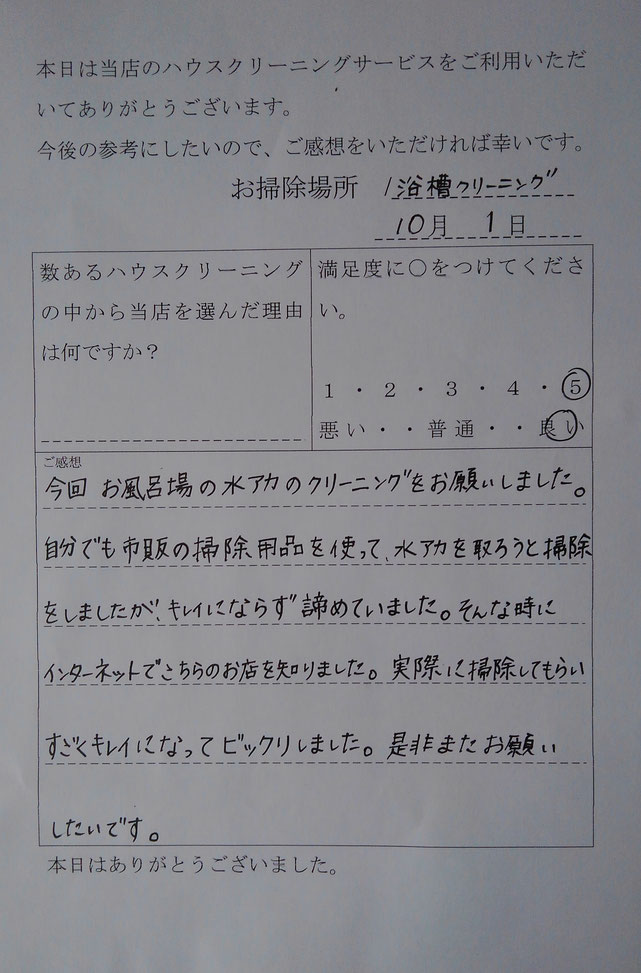 本日は当店のハウスクリーニングサービスをご利用いただ
いてありがとうございます。
今後の参考にしたいので、ご感想をいただければ幸いです。
お掃除場所 浴槽クリーニング
10月 1日
数あるハウスクリーニング
の中から当店を選んだ理由
は何ですか？
満足度に○をつけてくださ
い。
1 ・ 2 ・ 3 ・ 4 ・ 5
悪い・・普通・・良い
ご感想
今回 お風呂場の水アカのクリーニングをお願いしました。
自分でも市販の掃除用品を使って、水アカを取ろうと掃除
をしましたが、キレイにならず諦めていました。そんな時に
インターネットでこちらのお店を知りました。実際に掃除してもらい
すごくキレイになってビックリしました。是非またお願い
したいです。
本日はありがとうございました。